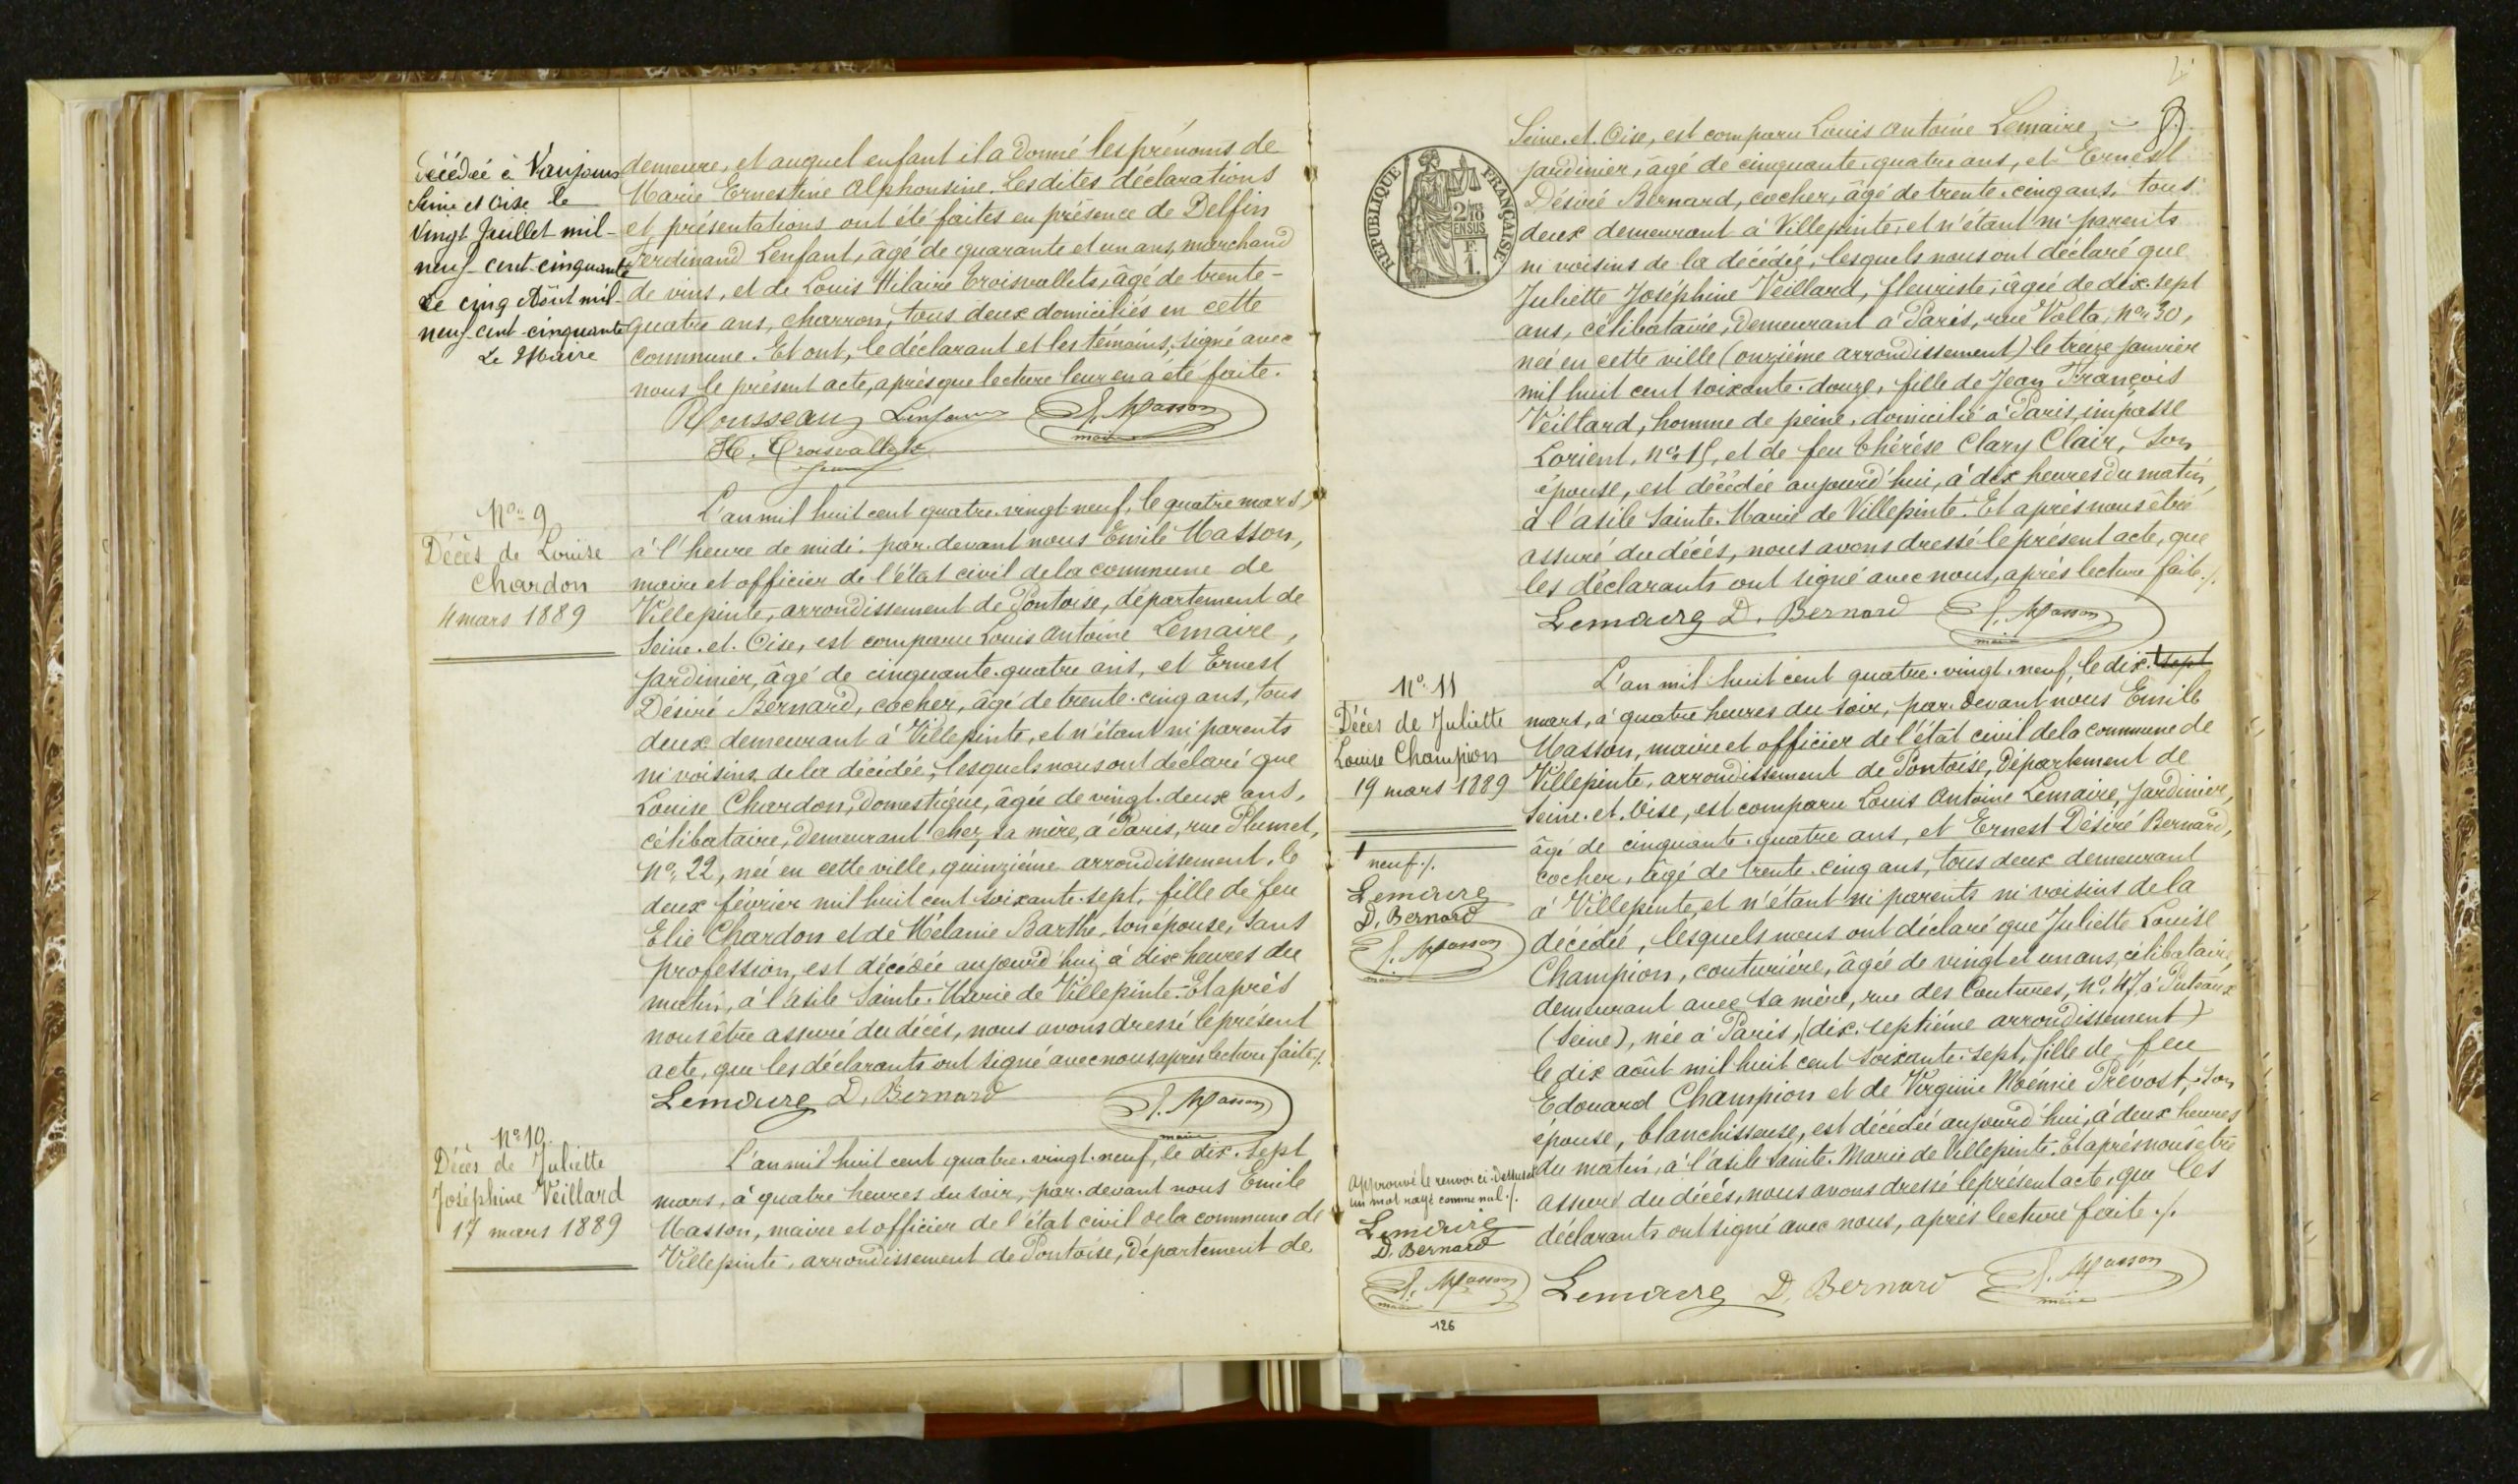 décédée à Vaujours
Seine et Oise le
vingt Juillet mil-
neuf-cent-cinquante
Le cinq Août mil-
neuf-cent-cinquante
Le Maire
demeure, et auquel enfant il a donné les prénoms de
Marie Ernestine Alphonsine. Lesdites déclarations
et présentations ont été faites en présence de Delfin
Ferdinand Lenfant, âgé de quarante et un ans, marchand
de vins, et de Louis Hilaire Croisvallets, âgé de trente-
quatre ans, charron, tous deux domiciliés en cette
commune. Et ont, le déclarant et les témoins, signé avec
nous le présent acte, après que lecture leur en a été faite.
Rousseau Lenfant E. Masson
maire
H. Croisvallets
No. 9
Décès de Louise
Chardon
4 mars 1889
L'an mil huit cent quatre-vingt-neuf, le quatre mars,
à l'heure de midi. par-devant nous Emile Masson,
maire et officier de l'état civil de la commune de
Villepinte, arrondissement de Pontoise, département de
Seine-et-Oise, est comparu Louis Antoine Lemaire,
jardinier, âgé de cinquante-quatre ans, et Ernest
Désiré Bernard, cocher, âgé de trente-cinq ans, tous
deux demeurant à Villepinte, et n'étant ni parents
ni voisins de la décédée, lesquels nous ont déclaré que
Louise Chardon, domestique, âgée de vingt-deux ans,
célibataire, demeurant chez sa mère, à Paris, rue Plumet,
No. 22, née en cette ville, quinzième arrondissement, le
deux février mil huit cent soixante-sept, fille de feu
Elie Chardon et de Mélanie Barthe, son épouse, sans
profession, est décédée aujourd'hui, à dix heures du
matin, à l'asile Sainte-Marie de Villepinte. Et après
nous être assuré du décès, nous avons dressé le présent
acte, que les déclarants ont signé avec nous, après lecture faite ./.
Lemaire D. Bernard E. Masson
maire
No. 10.
Décès de Juliette
Joséphine Veillard
17 mars 1889
L'an mil huit cent quatre-vingt-neuf, le dix-sept
mars, à quatre heures du soir, par-devant nous Emile
Masson, maire et officier de l'état civil de la commune de
Villepinte, arrondissement de Pontoise, Département de
4
RÉPUBLIQUE FRANÇAISE
2/10
EN SUS
F.
1.
Seine-et-Oise, est comparu Louis Antoine Lemaire,
jardinier, âgé de cinquante-quatre ans, et Ernest
Désiré Bernard, cocher, âgé de trente-cinq ans, tous
deux demeurant à Villepinte, et n'étant ni parents
ni voisins de la décédée, lesquels nous ont déclaré que
Juliette Joséphine Veillard, fleuriste, âgée de dix-sept
ans, célibataire, demeurant à Paris, rue Volta, No. 30,
née en cette ville (onzième arrondissement) le treize janvier
mil huit cent soixante-douze, fille de Jean François
Veillard, homme de peine, domicilié à Paris, impasse
Lorient, No. 15, et de feu Thérèse Clary Clair, son
épouse, est décédée aujourd'hui, à dix heures du matin,
à l'asile Sainte-Marie de Villepinte. Et après nous être
assuré du décès, nous avons dressé le présent acte, que
les déclarants ont signé avec nous, après lecture faite ./.
Lemaire D. Bernard E. Masson
maire
No. 11
Décès de Juliette
Louise Champion
19 mars 1889
neuf ./.
Lemaire
D. Bernard
E. Masson
maire
L'an mil huit cent quatre-vingt-neuf, le dix-sept
mars, à quatre heures du soir, par-devant nous Emile
Masson, maire et officier de l'état civil de la commune de
Villepinte, arrondissement de Pontoise, Département de
Seine-et-Oise, est comparu Louis Antoine Lemaire, jardinier,
âgé de cinquante-quatre ans, et Ernest Désiré Bernard,
cocher, âgé de trente-cinq ans, tous deux demeurant
à Villepinte, et n'étant ni parents ni voisins de la
décédée, lesquels nous ont déclaré que Juliette Louise
Champion, couturière, âgée de vingt et un ans, célibataire,
demeurant avec sa mère, rue des Coutures, No. 47, à Puteaux
(Seine), née à Paris, (dix-septième arrondissement)
le dix août mil huit cent soixante-sept, fille de feu
Edouard Champion et de Virginie Noémie Prévost, son
épouse, blanchisseuse, est décédée aujourd'hui, à deux heures
du matin, à l'asile Sainte-Marie de Villepinte. Et après nous être
assuré du décès, nous avons dressé le présent acte, que les
déclarants ont signé avec nous, après lecture faite ./.
Approuvé le renvoi ci-dessus et
un mot rayé comme nul ./.
Lemaire
D. Bernard
E. Masson
maire
Lemaire D. Bernard E. Masson
maire
126